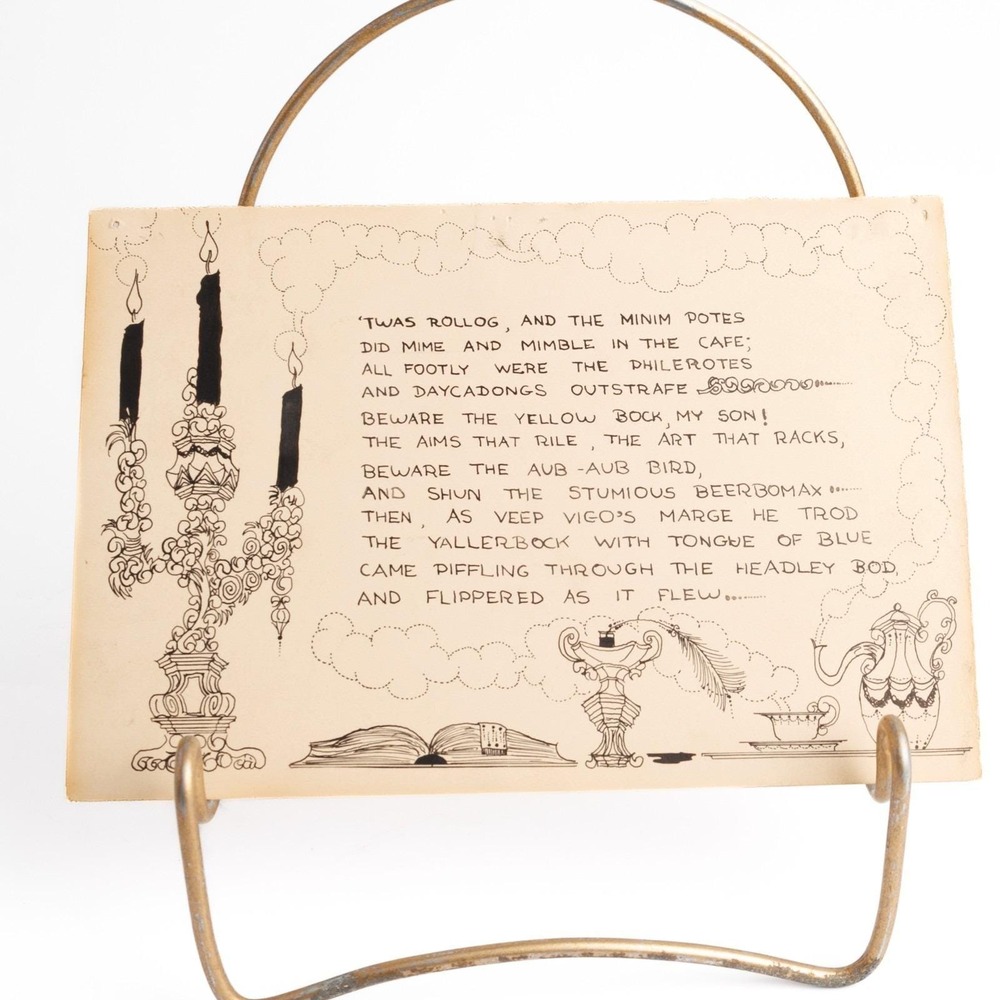 'TWAS ROLLOG, AND THE MINIM POTES
DID MIME AND MIMBLE IN THE CAFE;
ALL FOOTLY WERE THE PHILEROTES
AND DAYCADONGS OUTSTRAFE
BEWARE THE YELLOW BOCK, MY SON!
THE AIMS THAT RILE, THE ART THAT RACKS,
BEWARE THE AUB-AUB BIRD,
AND SHUN THE STUMIOUS BEERBOMAX
THEN, AS VEEP VIGO'S MARGE HE TROD
THE YALLERBOCK WITH TONGUE OF BLUE
CAME PIFFLING THROUGH THE HEADLEY BOD,
AND FLIPPERED AS IT FLEW........